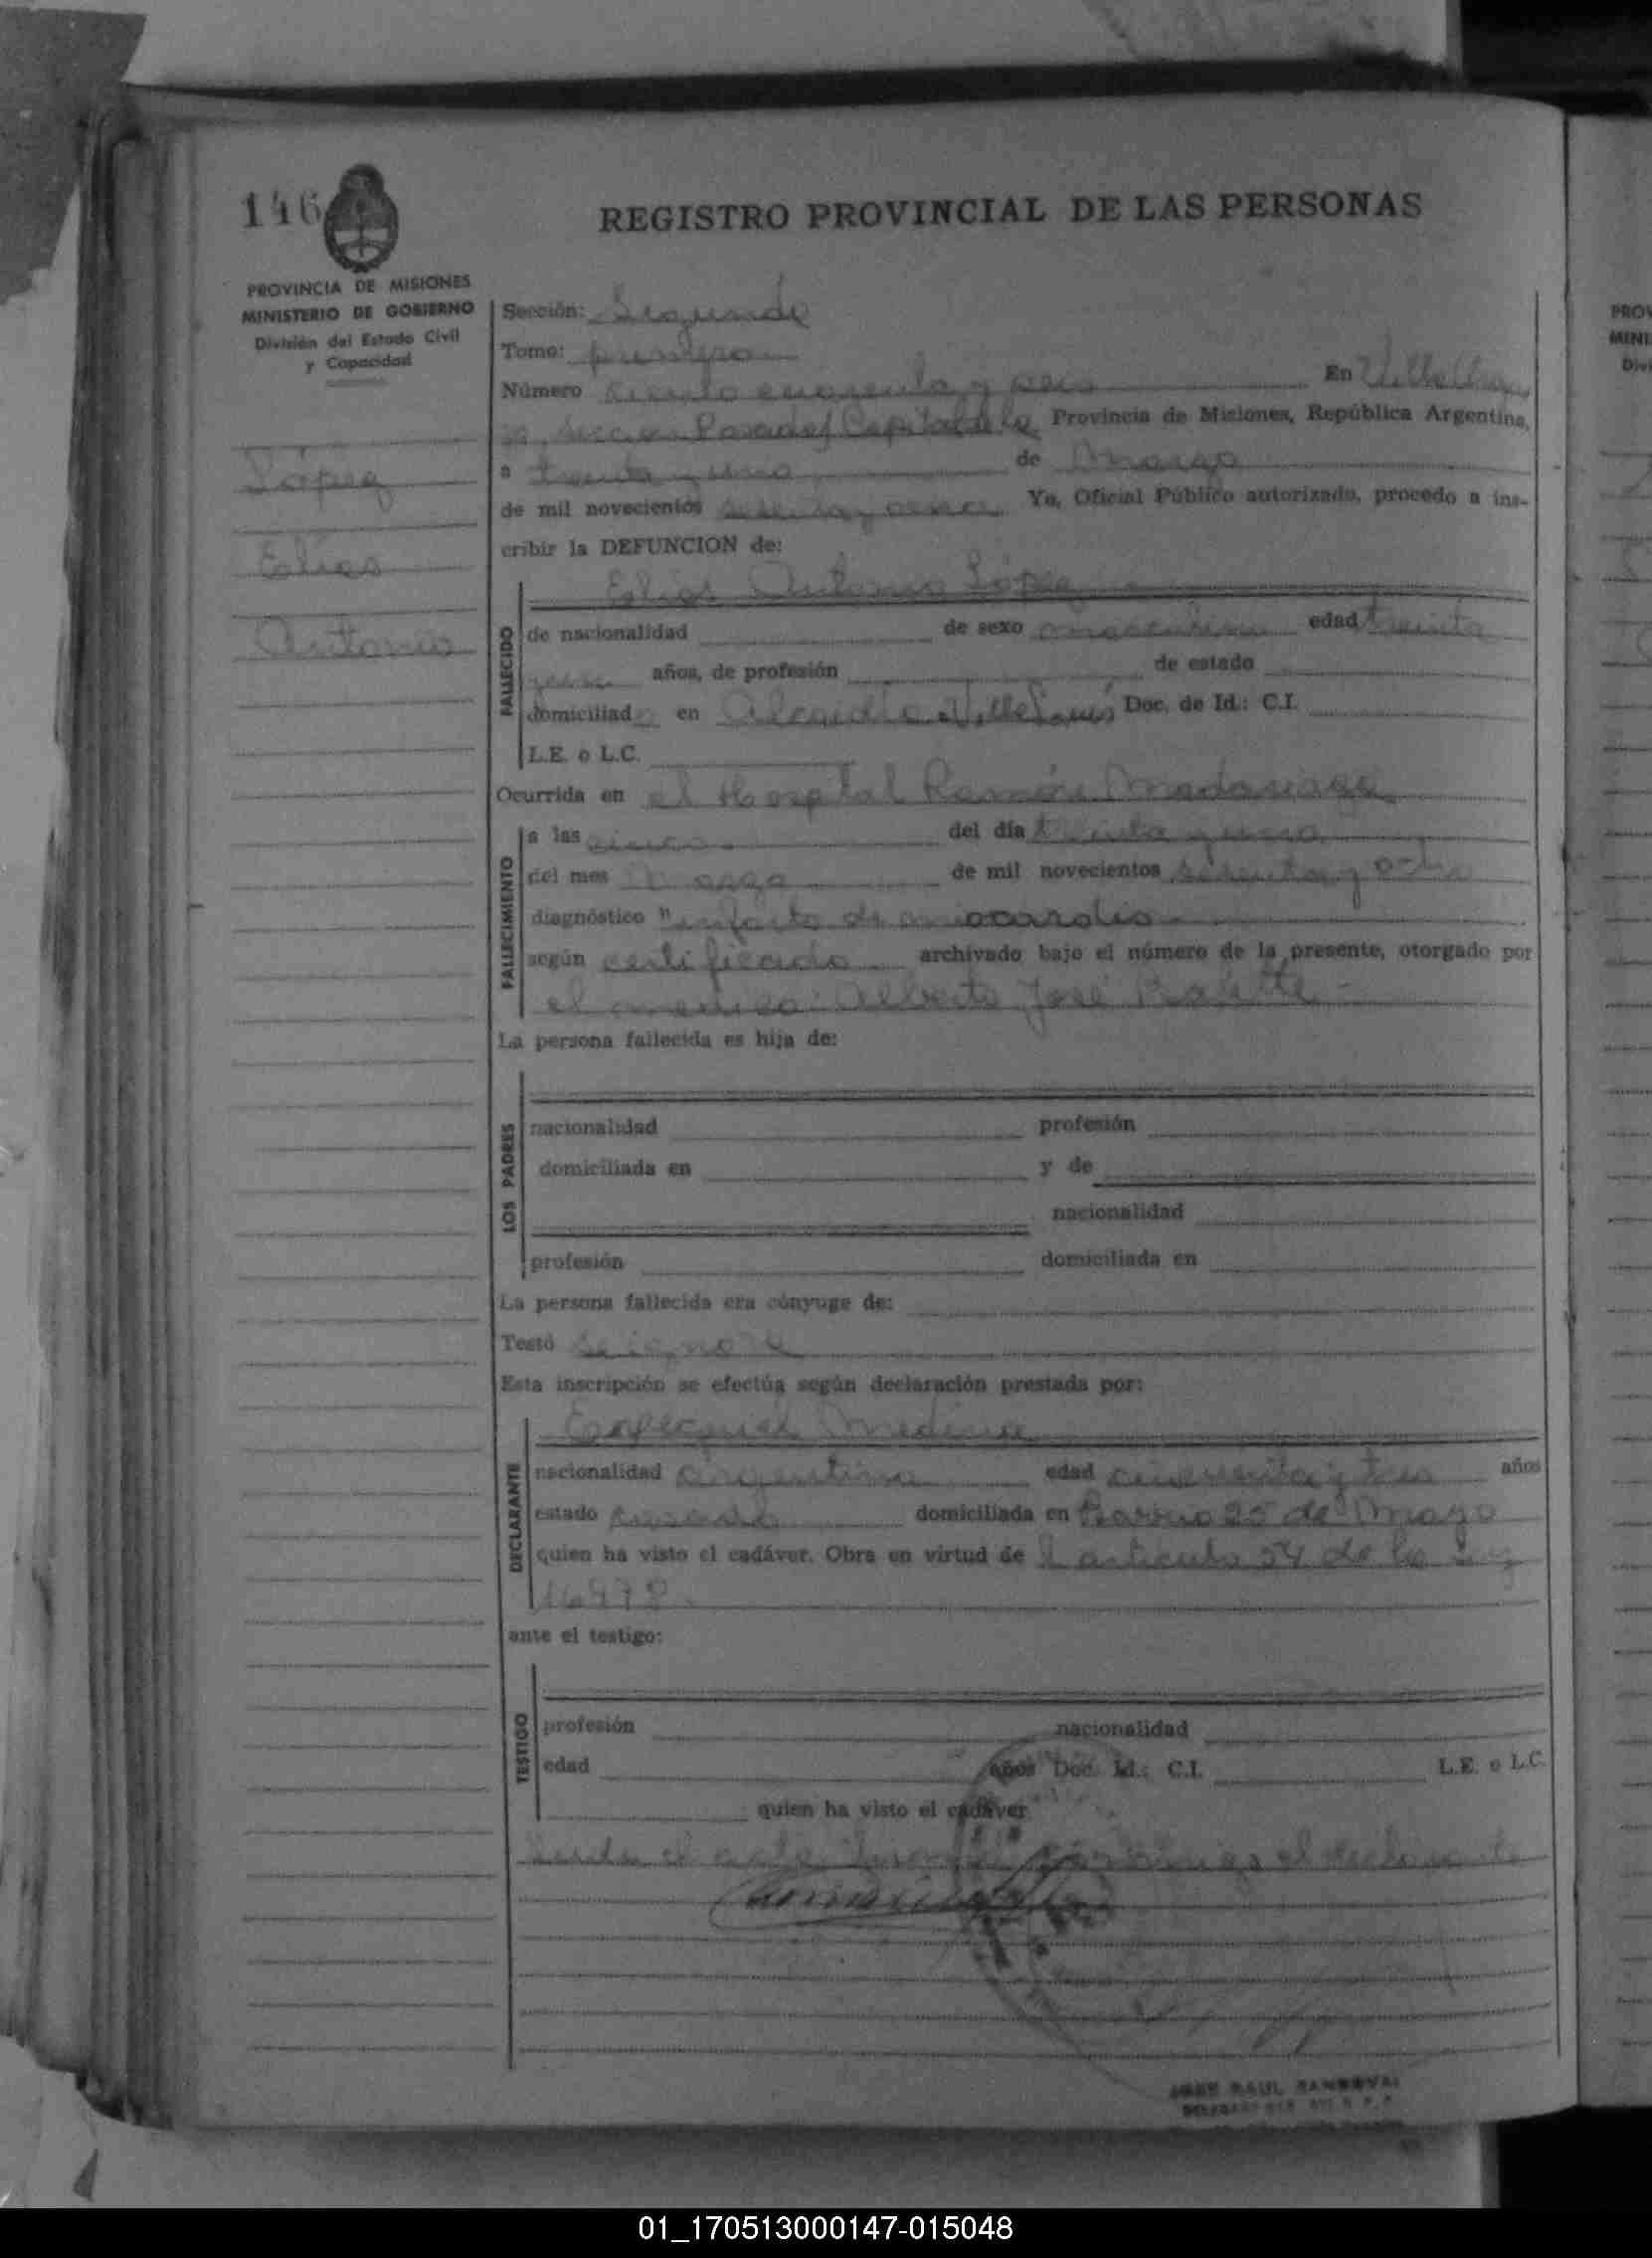 146
REGISTRO PROVINCIAL DE LAS PERSONAS
PROVINCIA DE MISIONES
MINISTERIO DE GOBIERNO
División del Estado Civil
y Capacidad
López
Elías
Antonio
Sección: Segunda
Tomo: primero
Número ciento cuarenta y seis En Villa
Sección Posadas Capital de la Provincia de Misiones, República Argentina,
a treinta y uno de Marzo
de mil novecientos Yo, Oficial Público autorizado, procedo a ins-
cribir la DEFUNCION de:
Elías Antonio López
FALLECIDO
de nacionalidad de sexo masculino edad treinta
años, de profesión de estado
domiciliado en Alcaidía Villa Doc. de Id.: C.I.
L.E. o L.C.
Ocurrida en el Hospital Ramón Madariaga
FALLECIMIENTO
a las cinco del día treinta y uno
del mes Marzo de mil novecientos setenta y ocho
diagnóstico "infarto de miocardio
según certificado archivado bajo el número de la presente, otorgado por
el médico: Alberto José
La persona fallecida es hija de:
LOS PADRES
nacionalidad profesión
domiciliada en y de
nacionalidad
profesión domiciliada en
La persona fallecida era cónyuge de:
Testó se ignora
Esta inscripción se efectúa según declaración prestada por:
Medina
DECLARANTE
nacionalidad argentina edad cincuenta y tres años
estado casado domiciliada en Barrio 25 de Mayo
quien ha visto el cadáver. Obra en virtud de l artículo 54 de la Ley
16478
ante el testigo:
TESTIGO
profesión nacionalidad
edad años Doc. Id.: C.I. L.E. o L.C.
quien ha visto el cadáver
el acta el declarante
JOSE RAUL SANDOVAL
01_170513000147-015048